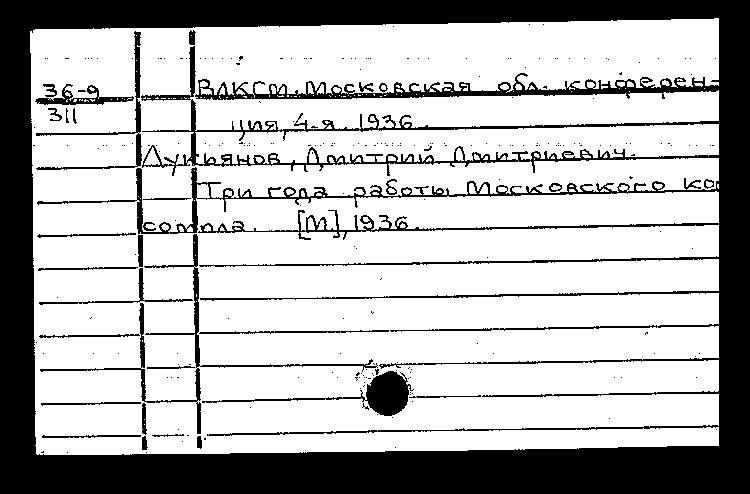 36-9 ВЛКСМ. Московская обл. конферен-
311
ция, 4-я. 1936.
Лукьянов, Дмитрий Дмитриевич.
Три года работы Московского ко
сомола. [М], 1936.